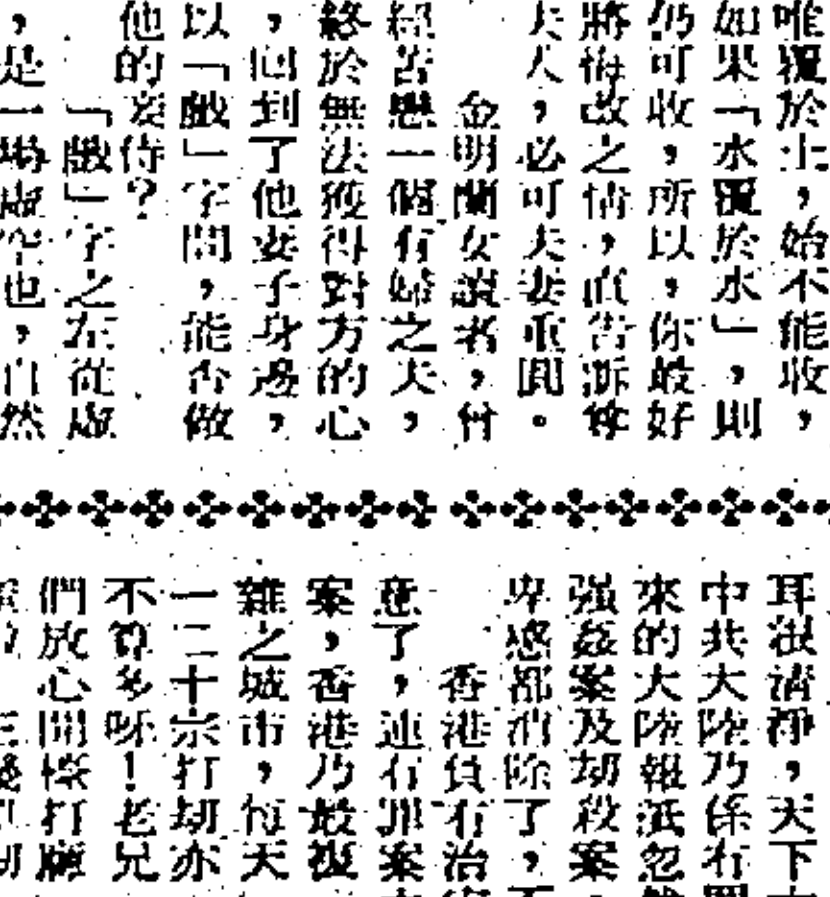 唯覆於土，始不能收，
如果「水覆於水」，則
仍可收，所以，你最好
將悔改之情，直告訴尊
夫人，必可夫妻重圓。
金明蘭女讀者，曾
經苦戀一個有婦之夫，
終於無法獲得對方的心
，回到了他妻子身邊，
以「戲」字問，能否做
他的妾侍？
「戲」字之左從虛
，是一場虛空也，自然
耳很清靜，天下
中共大陸乃係有
來的大陸報紙忽
強姦案及刼殺案
卑感都消除了，
香港負有治
意了，連有罪案
案，香港乃最複
雜之城市，每天
一二十宗打刼亦
不算多呀！老兄
們放心開檯打麻